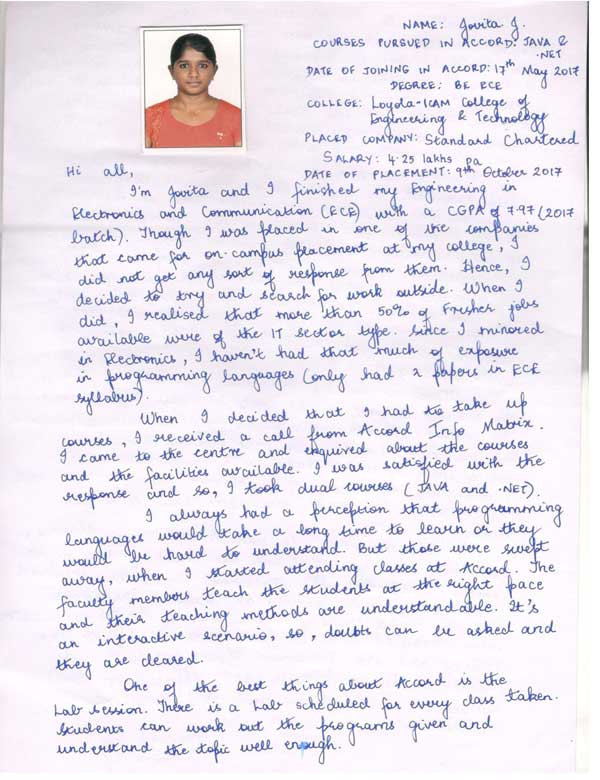 NAME: Jovita. J.
COURSES PURSUED IN ACCORD: JAVA &
.NET
DATE OF JOINING IN ACCORD: 17th May 2017
DEGREE: BE ECE
COLLEGE: Loyola-ICAM College of
Engineering & Technology
PLACED COMPANY: Standard Chartered
SALARY: 4.25 lakhs pa
DATE OF PLACEMENT: 9th October 2017
Hi all,
I'm Jovita and I finished my Engineering in
Electronics and Communication (ECE) with a CGPA of 7.97 (2017
batch). Though I was placed in one of the companies
that came for on-campus placement at my college, I
did not get any sort of response from them. Hence, I
decided to try and search for work outside. When I
did, I realised that more than 50% of Fresher jobs
available were of the IT sector type. Since I minored
in Electronics, I haven't had that much of exposure
in programming languages (only had 2 papers in ECE
syllabus).
When I decided that I had to take up
courses, I received a call from Accord Info Matrix.
I came to the centre and enquired about the courses
and the facilities available. I was satisfied with the
response and so, I took dual courses (JAVA and .NET).
I always had a perception that programming
languages would take a long time to learn or they
would be hard to understand. But those were swept
away, when I started attending classes at Accord. The
faculty members teach the students at the right pace
and their teaching methods are understandable. It's
an interactive scenario, so, doubts can be asked and
they are cleared.
One of the best things about Accord is the
Lab session. There is a Lab scheduled for every class taken.
Students can work out the programs given and
understand the topic well enough.